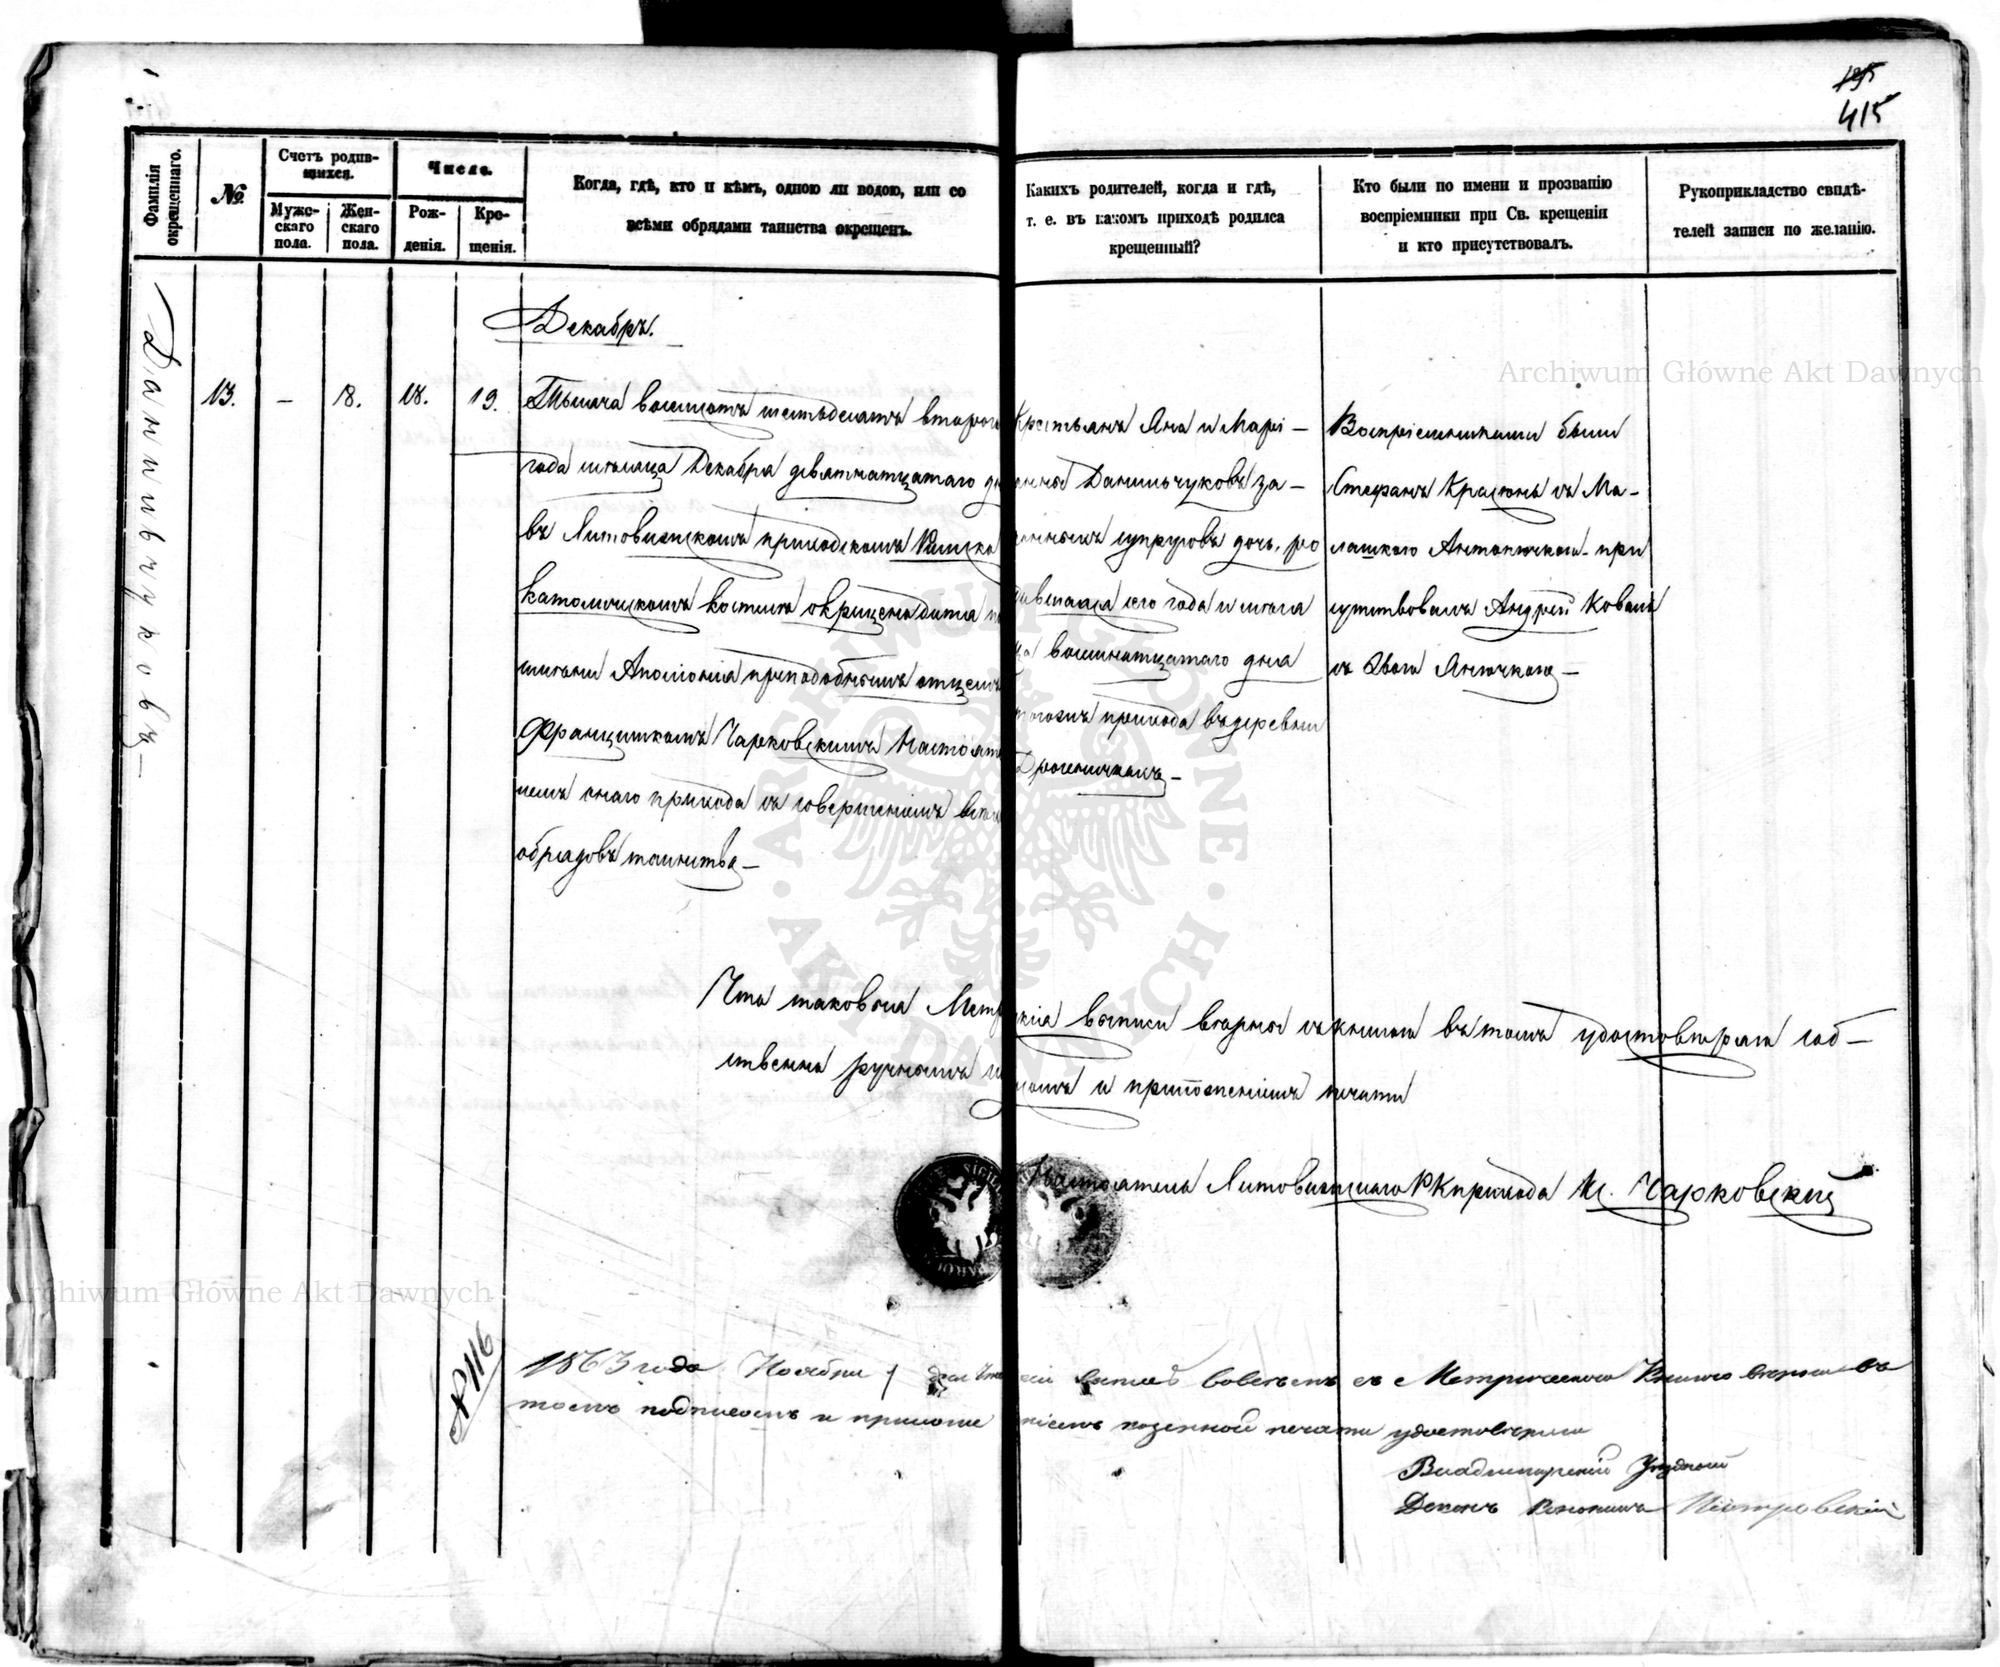 195
415
Фамилія окрещеннаго.
№
Счетъ родившихся.
Мужескаго пола.
Женскаго пола.
Число.
Рожденія.
Крещенія.
Когда, гдѣ, кто и кѣмъ, одною ли водою, или со
всѣми обрядами таинства окрещенъ.
Какихъ родителей, когда и гдѣ,
т. е. въ какомъ приходѣ родился
крещенный?
Кто были по имени и прозванію
воспріемники при Св. крещеніи
и кто присутствовалъ.
Рукоприкладство свидѣ-
телей записи по желанію.
Данильчуковъ
13.
—
8.
18.
19.
Декабрь.
Тысяча восемсотъ шестьдесятъ второго
года мѣсяца Декабря девятнатцатаго дня
въ Литовижскомъ приходскомъ Римско
католическомъ костелѣ окрещено дитя
имени Аполонія преподобнымъ отцемъ
Францишкомъ Чарковскимъ Настояте
лемъ онаго прихода съ совершеніемъ всѣхъ
обрядовъ таинства—
Крестьянъ Яна и Марі—
анны Данильчуковъ за—
конныхъ супруговъ дочь, ро
дившаяся сего года и мѣся
ца восемнатцатаго дня
прихода въ деревни
Воспріемниками были
Стефанъ съ Ма—
при
сутствовалъ Андрей Коваль
съ
Что таковыя Метрическія выписи вѣрны съ книгою въ томъ удостовѣряю соб—
ственно ручнымъ и приложеніемъ печати
Настоятель Литовижскаго РК прихода Чарковскій
№ 116
1863 года Ноября 1 дня выпись совсѣмъ съ Метрическою Книгою вѣрна въ
томъ подписомъ и приложеніемъ казенной печати удостовѣряю
Владимірскій Уѣздный
Деканъ Каноникъ Піотровскій
Archiwum Główne Akt Dawnych
Archiwum Główne Akt Dawnych
ARCHIWUM GŁÓWNE AKT DAWNYCH